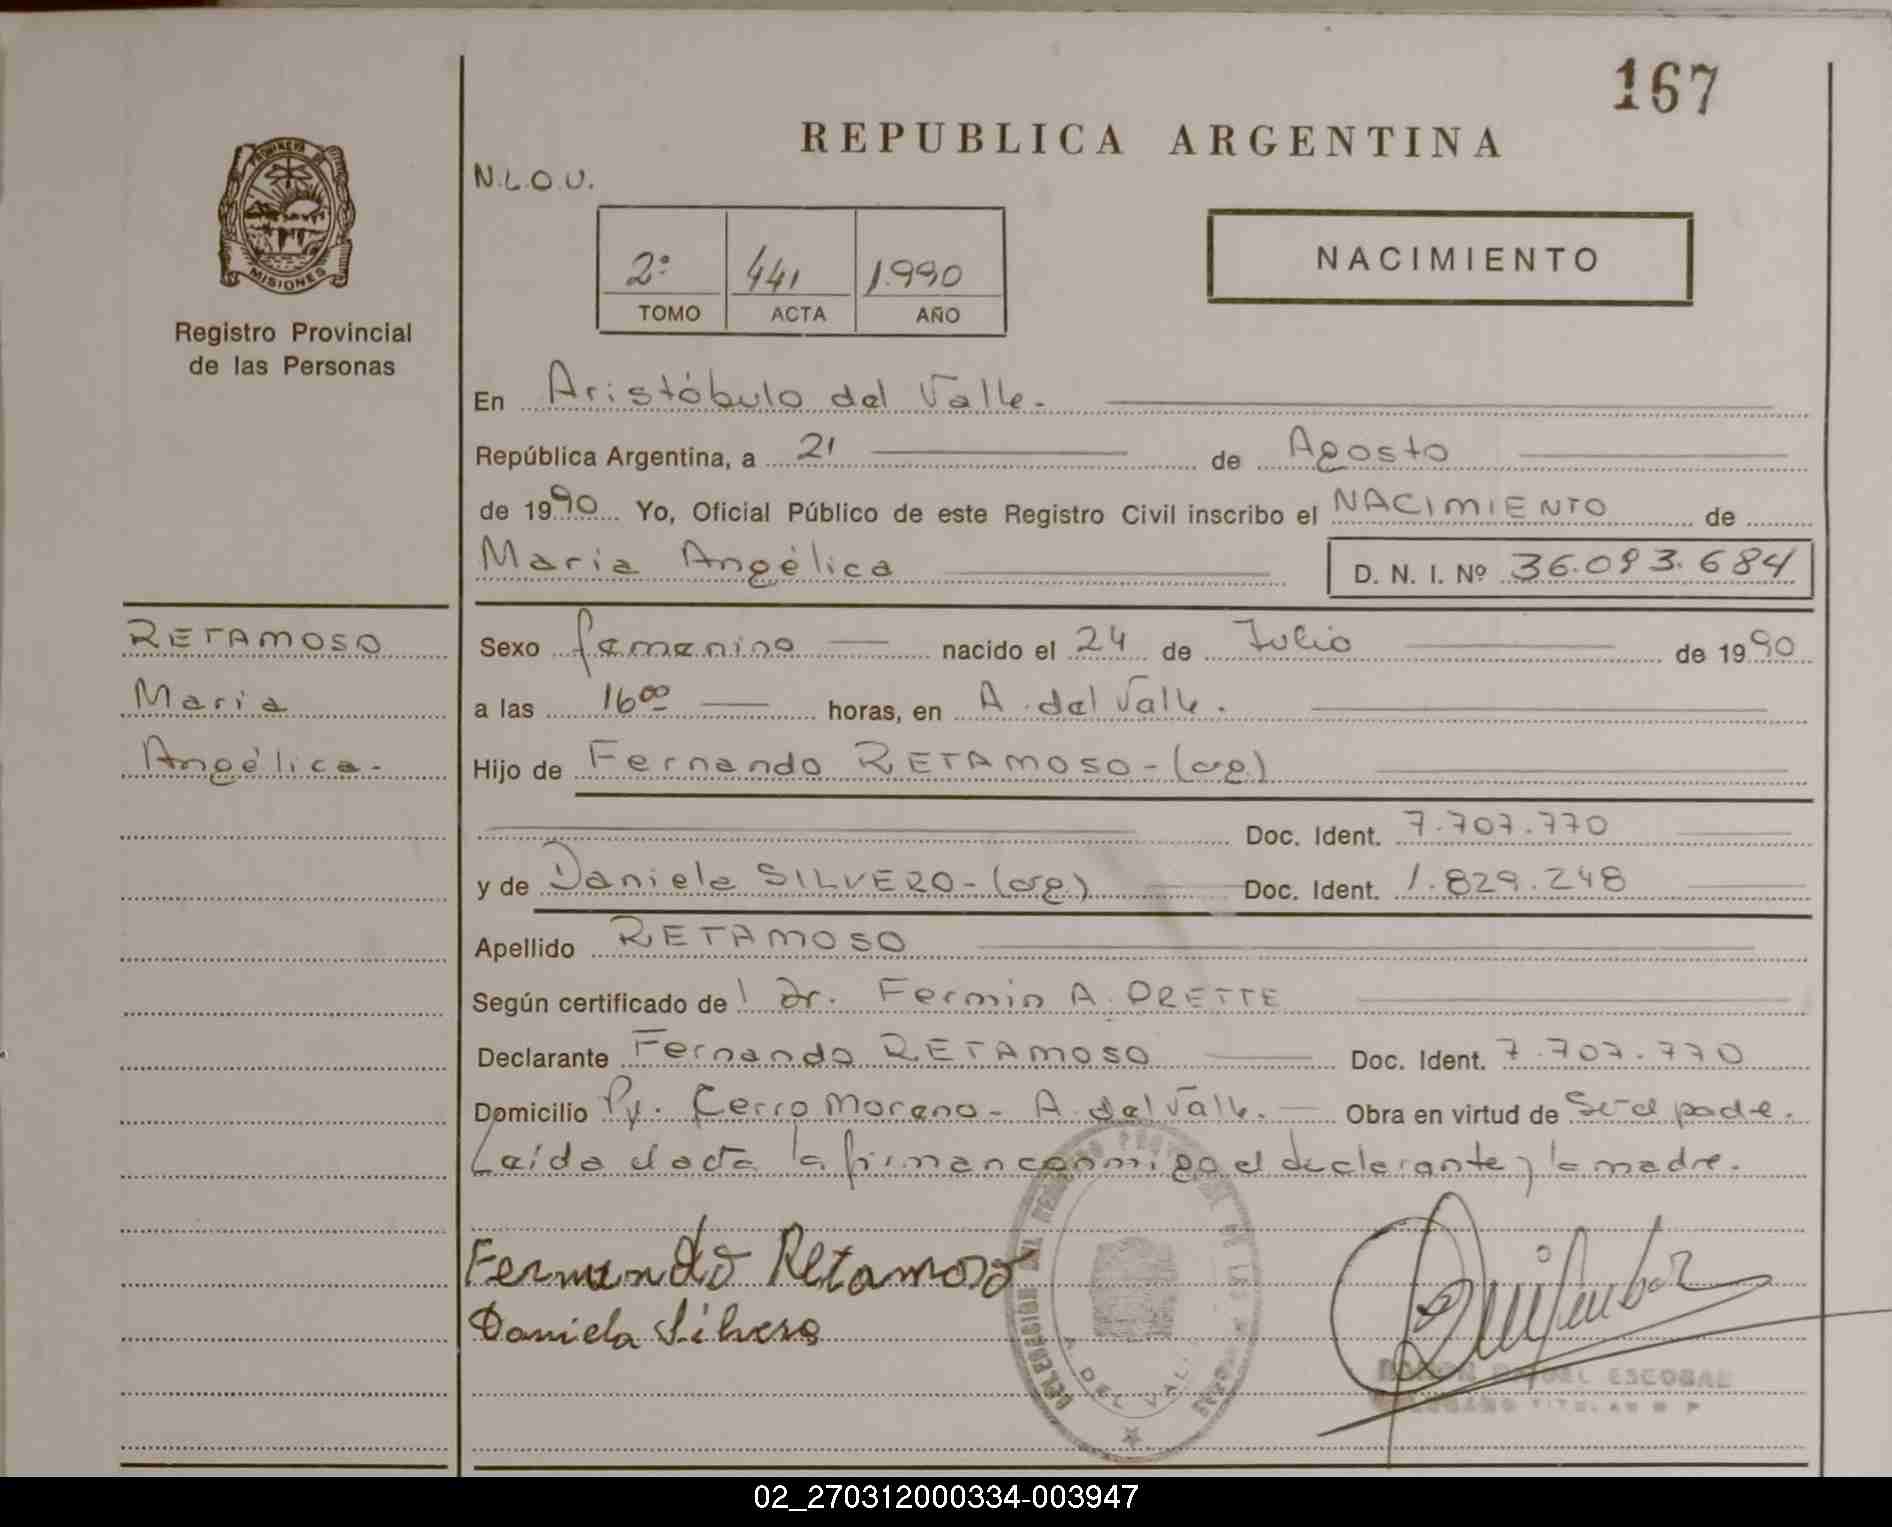 167
REPUBLICA ARGENTINA
N.L.O.U.
PROVINCIA DE
MISIONES
Registro Provincial
de las Personas
2º 441 1.990
TOMO ACTA AÑO
NACIMIENTO
En Aristóbulo del Valle.
República Argentina, a 21 de Agosto
de 1990 Yo, Oficial Público de este Registro Civil inscribo el NACIMIENTO de
María Angélica D. N. I. Nº 36.093.684
RETAMOSO
María
Angélica.
Sexo femenino nacido el 24 de Julio de 1990
a las 16⁰⁰ horas, en A. del Valle.
Hijo de Fernando RETAMOSO - (arg)
Doc. Ident. 7.707.770
y de Daniela SILVERO - (arg) Doc. Ident. 1.829.248
Apellido RETAMOSO
Según certificado de Dr. Fermín A. ORETTE
Declarante Fernando RETAMOSO Doc. Ident. 7.707.770
Domicilio Py. Cerro Moreno - A. del Valle. Obra en virtud de Ser el padre.
Leída el acta la firman conmigo el declarante y la madre.
Fernando Retamoso
Daniela Silvero
A. DEL VALLE
ESCOBAR
TITULAR R P
02_270312000334-003947